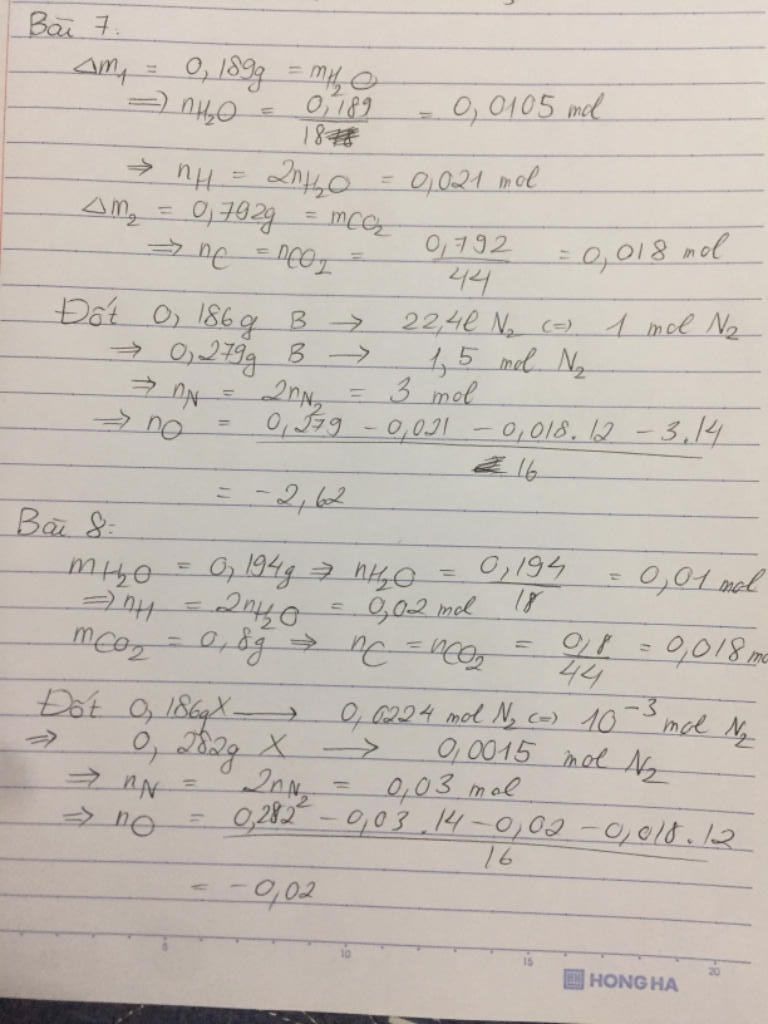 Bài 7:
Δm₁ = 0,189g = mH₂O
=> nH₂O = 0,189/18 = 0,0105 mol
=> nH = 2nH₂O = 0,021 mol
Δm₂ = 0,792g = mCO₂
=> nC = nCO₂ = 0,792/44 = 0,018 mol
Đốt 0,186g B → 22,4l N₂ <=> 1 mol N₂
=> 0,279g B → 1,5 mol N₂
=> nN = 2nN₂ = 3 mol
=> nO = (0,279 - 0,021 - 0,018.12 - 3.14)/16
= -2,62
Bài 8:
mH₂O = 0,194g => nH₂O = 0,194/18 = 0,01 mol
=> nH = 2nH₂O = 0,02 mol
mCO₂ = 0,8g => nC = nCO₂ = 0,8/44 = 0,018 mo
Đốt 0,186g X → 0,0224 mol N₂ <=> 10⁻³ mol N₂
=> 0,282g X → 0,0015 mol N₂
=> nN = 2nN₂ = 0,03 mol
=> nO = (0,282 - 0,03.14 - 0,02 - 0,018.12)/16
= -0,02
5 10 15 20
HH HONG HA